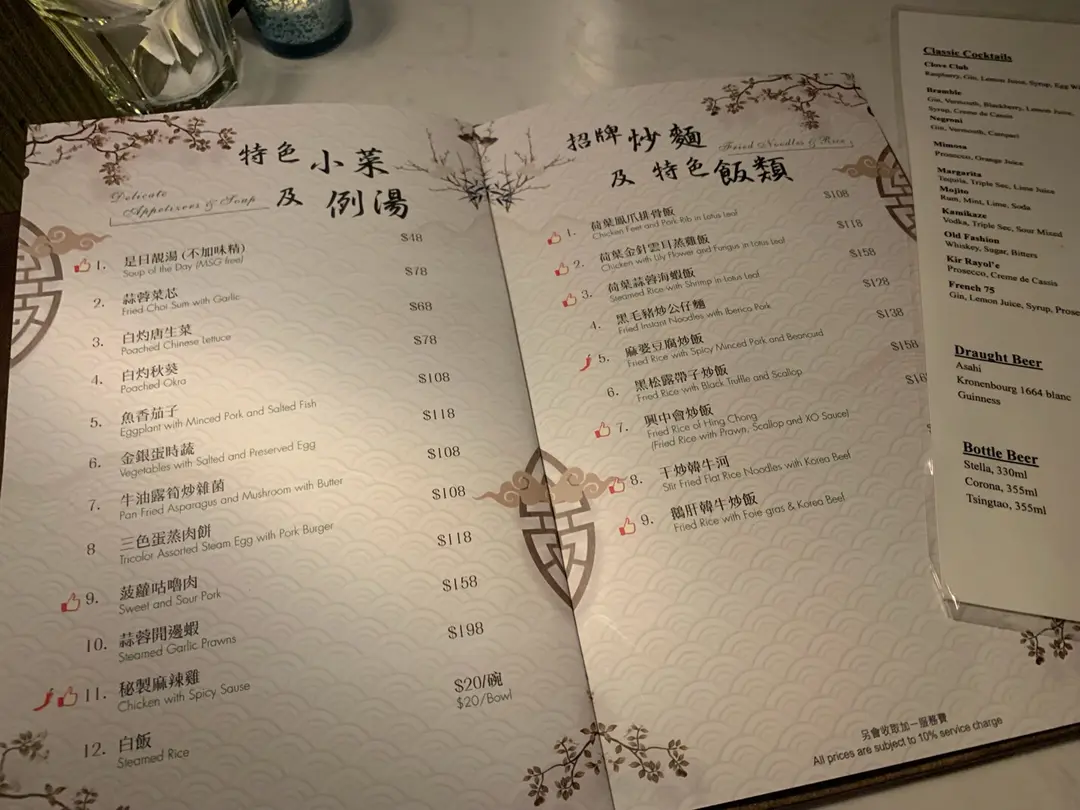 特色 小菜
及 例湯
Delicate
Appetizers & Soup
1. 是日靚湯 (不加味精) $48
Soup of the Day (MSG free)
2. 蒜蓉菜芯 $78
Fried Choi Sum with Garlic
3. 白灼唐生菜 $68
Poached Chinese Lettuce
4. 白灼秋葵 $78
Poached Okra
5. 魚香茄子 $108
Eggplant with Minced Pork and Salted Fish
6. 金銀蛋時蔬 $118
Vegetables with Salted and Preserved Egg
7. 牛油露筍炒雜菌 $108
Pan Fried Asparagus and Mushroom with Butter
8 三色蛋蒸肉餅 $108
Tricolor Assorted Steam Egg with Pork Burger
9. 菠蘿咕嚕肉 $118
Sweet and Sour Pork
10. 蒜蓉開邊蝦 $158
Steamed Garlic Prawns
11. 秘製麻辣雞 $198
Chicken with Spicy Sause
12. 白飯 $20/碗
Steamed Rice $20/Bowl
招牌 炒麵
及 特色 飯類
Fried Noodles & Rice
1. 荷葉鳳爪排骨飯 $108
Chicken Feet and Pork Rib in Lotus Leaf
2. 荷葉金針雲耳蒸雞飯 $118
Chicken with Lily Flower and Fungus in Lotus Leaf
3. 荷葉蒜蓉海蝦飯 $158
Steamed Rice with Shrimp in Lotus Leaf
4. 黑毛豬炒公仔麵 $128
Fried Instant Noodles with Iberico Pork
5. 麻婆豆腐炒飯 $138
Fried Rice with Spicy Minced Pork and Beancurd
6. 黑松露帶子炒飯 $158
Fried Rice with Black Truffle and Scallop
7. 興中會炒飯
Fried Rice of Hing Chong
(Fried Rice with Prawn, Scallop and XO Sauce)
8. 干炒韓牛河
Stir Fried Flat Rice Noodles with Korea Beef
9. 鵝肝韓牛炒飯
Fried Rice with Foie gras & Korea Beef
另會收取加一服務費
All prices are subject to 10% service charge
Classic Cocktails
Clove Club
Raspberry, Gin, Lemon Juice, Syrup, Egg
Bramble
Gin, Vermouth, Blackberry, Lemon Juice,
Syrup, Creme de Cassis
Negroni
Gin, Vermouth, Campari
Mimosa
Prosecco, Orange Juice
Margarita
Tequila, Triple Sec, Lime Juice
Mojito
Rum, Mint, Lime, Soda
Kamikaze
Vodka, Triple Sec, Sour Mixed
Old Fashion
Whiskey, Sugar, Bitters
Kir Rayol'e
Prosecco, Creme de Cassis
French 75
Gin, Lemon Juice, Syrup,
Draught Beer
Asahi
Kronenbourg 1664 blanc
Guinness
Bottle Beer
Stella, 330ml
Corona, 355ml
Tsingtao, 355ml